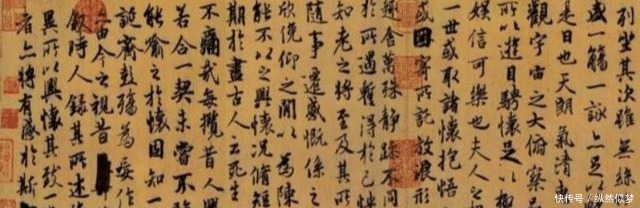 列坐其次雖無絲
盛一觴一詠亦足以
是日也天朗氣清
觀宇宙之大俯察品
所以遊目騁懷足以極
娛信可樂也夫人之
一世或取諸懷抱悟
或因寄所託放浪形
趣舍萬殊靜躁不同
於所遇蹔得於己怏
知老之將至及其所
隨事遷感慨係之
欣俛仰之間以為陳
能不以之興懷況脩短
期於盡古人云死生
不痛哉每攬昔人興
若合一契未嘗不臨
能喻之於懷固知一
誕齊彭殤為妄作
亦由今之視昔
敘時人錄其所述
異所以興懷其致一
者亦將有感於斯
快传号 / 纵然似梦